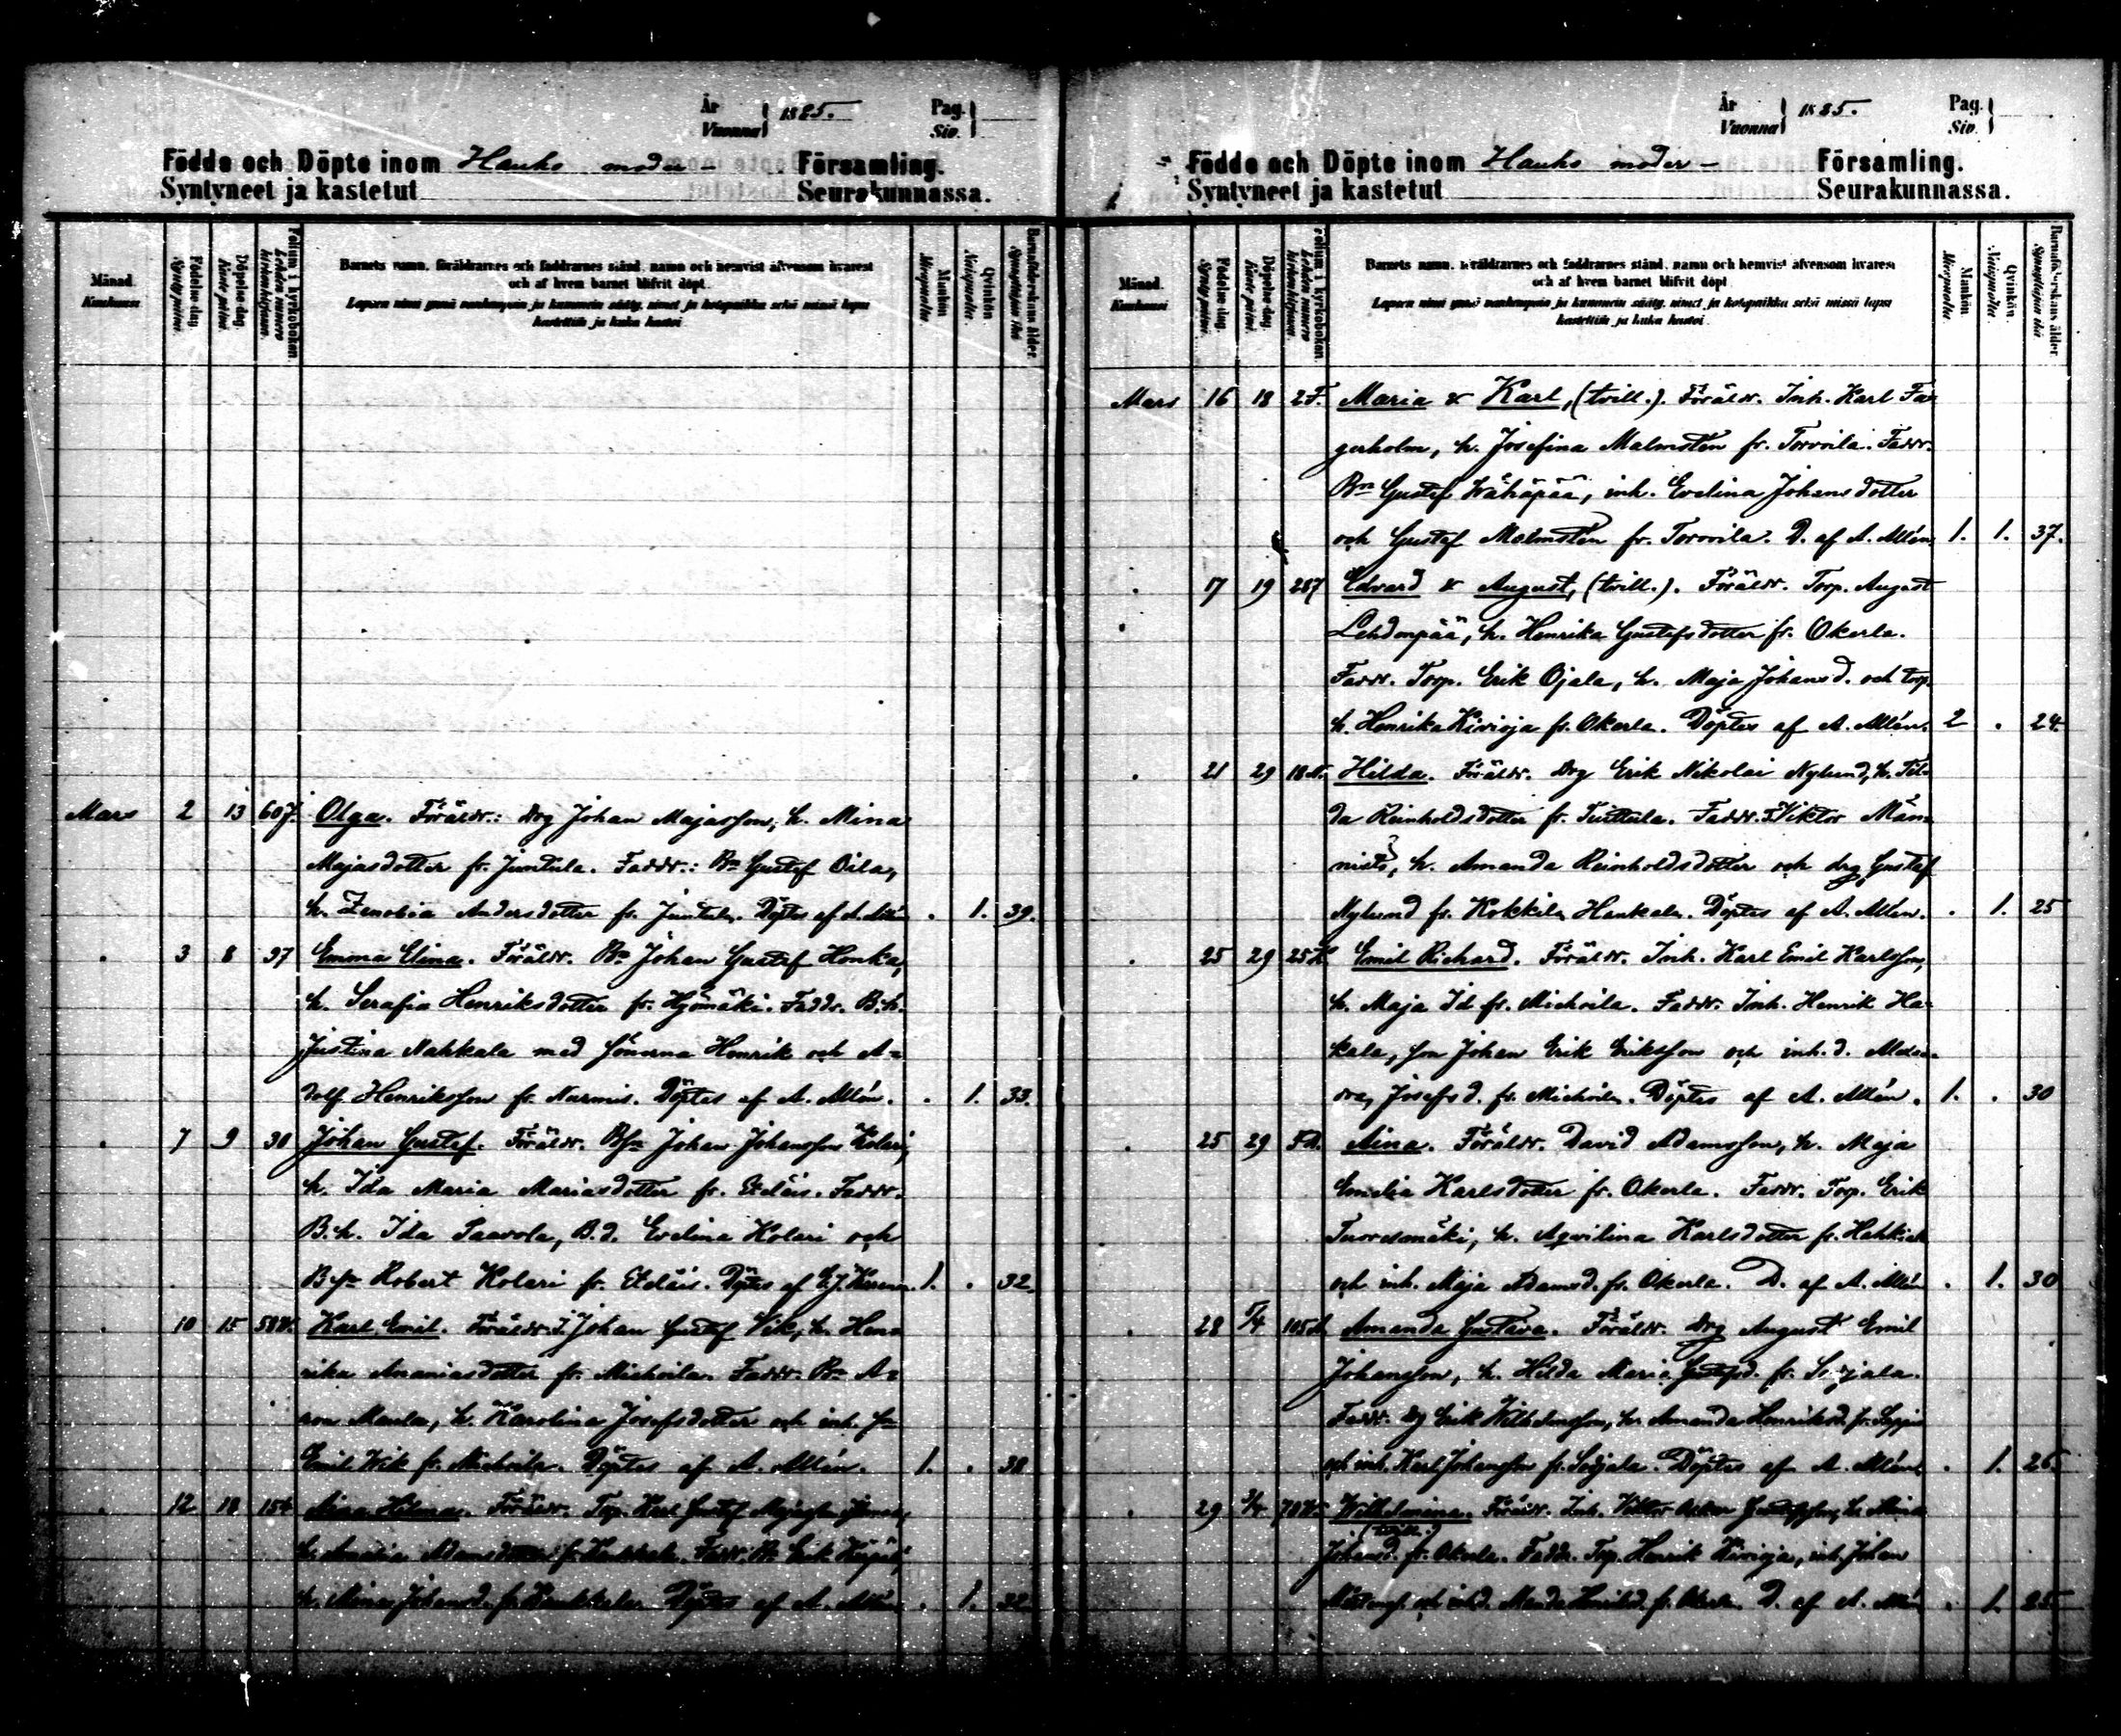 År
Vuonna } 1885.
Pag.
Siv. }
Födde och Döpte inom Hauho moder- Församling.
Syntyneet ja kastetut Seurakunnassa.
Månad. Kuukausi
Födelse-dag. Syntymäpäivä
Döpelse-dag. Kaste päivä
Folium i kyrkoboken. Lehden numero kirkonkirjassa
Barnets namn, föräldrarnes och faddrarnes stånd, namn och hemvist äfvensom hvarest
och af hvem barnet blifvit döpt.
Lapsen nimi ynnä vanhempain ja kummein sääty, nimet ja kotopaikka sekä missä lapsi
kastettiin ja kuka kastoi
Mankön. Miespuolta
Qvinkön. Naispuolta
Barnaföderskans ålder.
Mars 2 13 607. Olga. Föräldr.: drg Johan Majasson, h. Mina
Majasdotter fr. Juntula. Faddr.: Bn Gustef Oila,
h. Zenobia Andersdotter fr. Juntula. Döptes af A. Allén . 1. 39.
. 3 8 97 Emma Elina. Föräldr. Bn Johan Gustef Honka,
h. Serafia Henriksdotter fr. Hyömäki. Faddr. B.h.
Justina Nahkala med sönerna Henrik och A=
dolf Henriksson fr. Nurmis. Döptes af A. Allén. . 1. 33.
. 7 9 30 Johan Gustef. Föräldr. Bsn Johan Johansson Kolari,
h. Ida Maria Mariasdotter fr. Eteläis. Faddr.
B.h. Ida Saavola, B.d. Evelina Kolari och
Bsn Robert Kolari fr. Eteläis. Döptes af 1. . 32.
. 10 15 Karl Emil. Föräldr. I. Johan Gustaf Vik, h. Hen=
rika Ananiasdotter fr. Miehoila. Faddr. Bn A=
ron Maula, h. Karolina Josefsdotter och inh. sn
Emil Wik fr. Miehoila. Döptes af A. Allén. 1. . 38
. 12 18 154 Aina Hilma. Föräldr. Torp. Karl Gustaf
h. Amalia Faddr. Bn Erik
h. Mina Johansd. fr. Döptes af A. Allén . 1. 32
År
Vuonna } 1885.
Pag.
Siv. }
Födde och Döpte inom Hauho moder- Församling.
Syntyneet ja kastetut Seurakunnassa.
Månad. Kuukausi
Födelse-dag. Syntymäpäivä
Döpelse-dag. Kaste päivä
Folium i kyrkoboken. Lehden numero kirkonkirjassa
Barnets namn, föräldrarnes och faddrarnes stånd, namn och hemvist äfvensom hvarest
och af hvem barnet blifvit döpt.
Lapsen nimi ynnä vanhempain ja kummein sääty, nimet ja kotopaikka sekä missä lapsi
kastettiin ja kuka kastoi
Mankön. Miespuolta
Qvinkön. Naispuolta
Barnaföderskans ålder.
Mars 16 18 2F. Maria & Karl, (tvill.). Föräldr. Inh. Karl Fa=
gerholm, h. Josefina Malmstén fr. Torvoila. Faddr.
Bn Gustef Wähäpää, inh. Evelina Johansdotter
och Gustef Malmstén fr. Torvoila. D. af A. Allén. 1. 1. 37.
. 17 19 287 Edvard & August, (tvill.). Föräldr. Torp. August
Lehdonpää, h. Henrika Gustefsdotter fr. Okerla.
Faddr. Torp. Erik Ojala, h. Maja Johansd. och torp.
h. Henrika Kivioja fr. Okerla. Döptes af A. Allén. 2 . 24.
. 21 29 18N. Hilda. Föräldr. Drg Erik Nikolai Nylund, h. Til=
da Reinholdsdotter fr. Tuittula. Faddr. I. Viktor Män=
nistö, h. Amanda Reinholdsdotter och drg Gustaf
Nylund fr. Kokkila Hankala. Döptes af A. Allén. . 1. 25
. 25 29 25K. Emil Richard. Föräldr. Inh. Karl Emil Karlsson,
h. Maja Id fr. Miehoila. Faddr. Inh. Henrik Ha=
kala, son Johan Erik Eriksson och inh. d.
Josefsd. fr. Miehoila. Döptes af A. Allén. 1. . 30
. 25 29 Aina. Föräldr. David Adamsson, h. Maja
Emelia Karlsdotter fr. Okerla. Faddr. Torp. Erik
Tuovesmäki, h. Aqvilina Karlsdotter fr. Hahkiala
och inh. Maja Adamsd. fr. Okerla. D. af A. Allén . 1. 30
. 28 5/4 Amanda Gustava. Föräldr. Drg August Emil
Johansson, h. Hilda Maria Gustefsd. fr. Sotjala.
Faddr. drg Erik Wilhelmsson, h. Amanda Henriksd. fr.
och inh. Karl Johansson fr. Sotjala. Döptes af A. Allén. . 1. 26.
. 29 Wilhelmina. Föräldr. Inh. Viktor Oskar Gustefsson, h. Mina
(tvill.)
Johansd. fr. Okerla. Faddr. Torp. Henrik Kivioja, inh. Johan
och inh.d. Manda fr. Okerla. D. af A. Allén . 1. 25